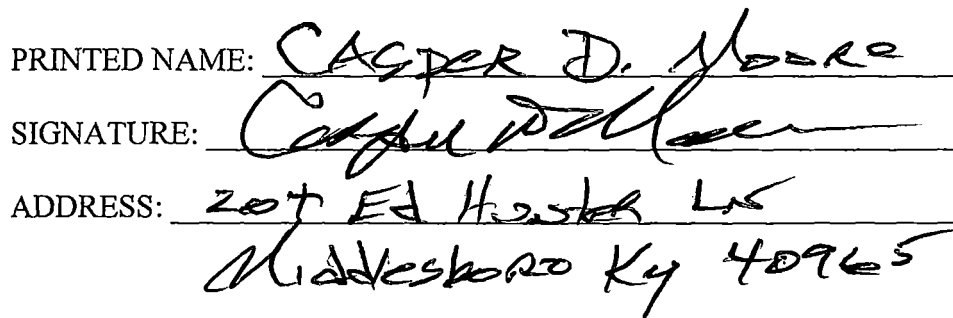 PRINTED NAME: CASPER D. MOORE
SIGNATURE: Casper D Moore
ADDRESS: Ed Hunter LN
Middlesboro Ky 40965